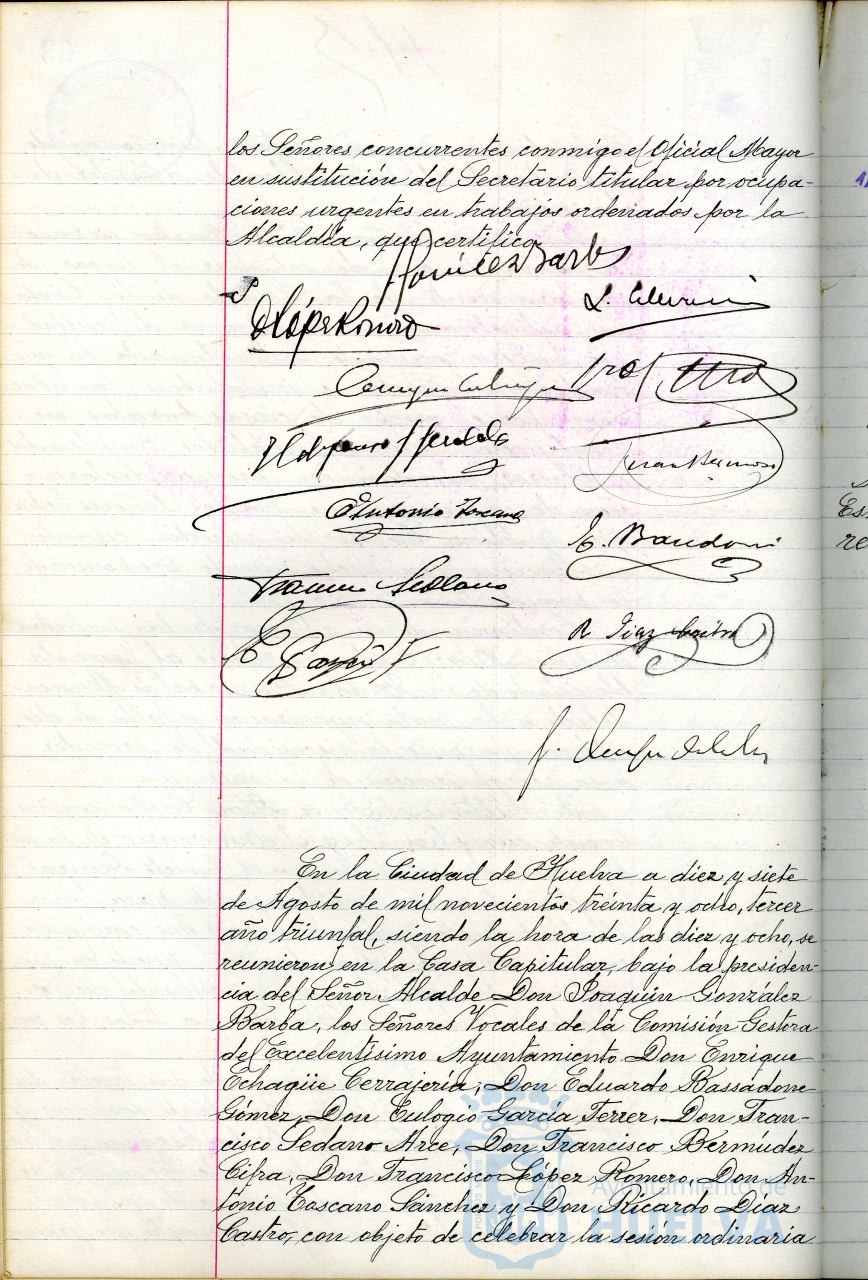 los Señores concurrentes conmigo el Oficial Mayor
en sustitución del Secretario titular por ocupa-
ciones urgentes en trabajos ordenados por la
Alcaldía, que certifico
González Barba
López Romero
Juan Bermúdez
Antonio Toscano
E. Bassadone
Francisco Sedano
R Diaz Castro
E García F
En la Ciudad de Huelva a diez y siete
de Agosto de mil novecientos treinta y ocho, tercer
año triunfal, siendo la hora de las diez y ocho, se
reunieron en la Casa Capitular, bajo la presiden-
cia del Señor Alcalde Don Joaquín González
Barba, los Señores Vocales de la Comisión Gestora
del Excelentísimo Ayuntamiento Don Enrique
Echagüe Cerrajería, Don Eduardo Bassadone
Gómez, Don Eulogio García Ferrer, Don Fran-
cisco Sedano Arce, Don Francisco Bermúdez
Cifra, Don Francisco López Romero, Don An-
tonio Toscano Sánchez y Don Ricardo Díaz
Castro, con objeto de celebrar la sesión ordinaria
Ayuntamiento de
HUELVA